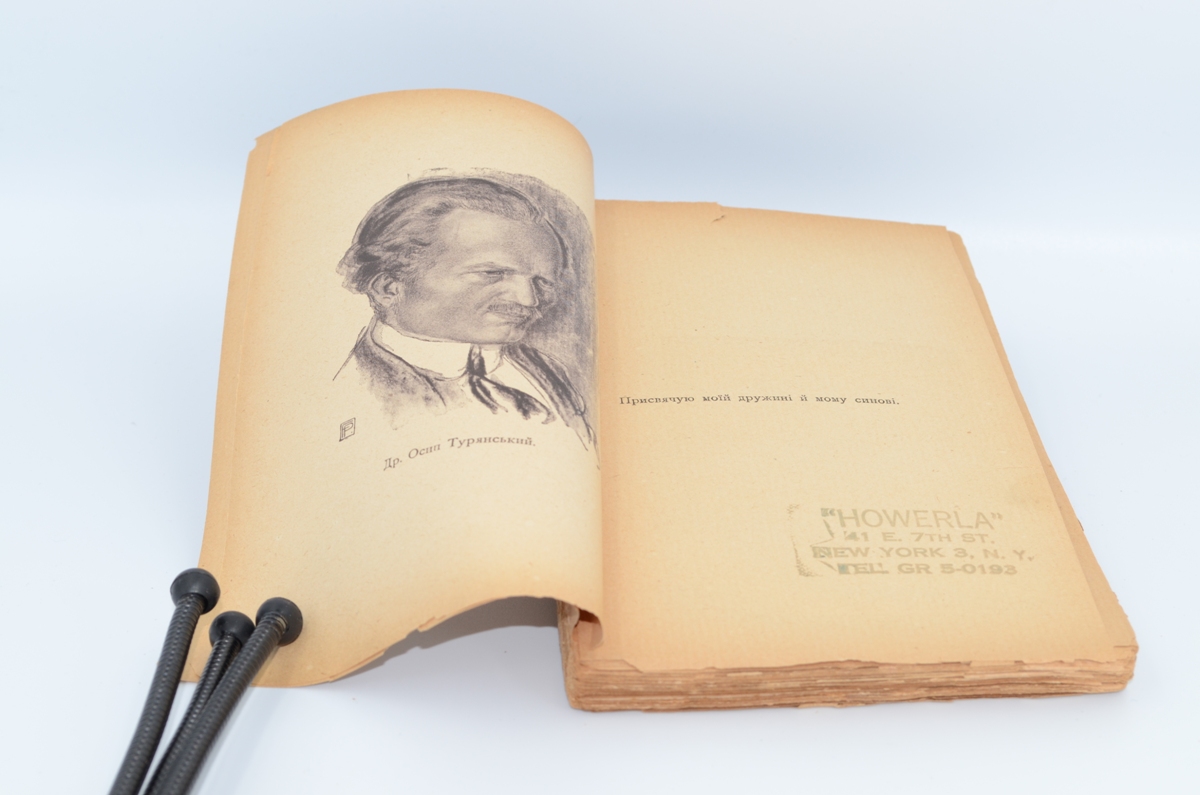 Др. Осип Турянський.
Присвячую моїй дружині й мому синові.
"HOWERLA"
41 E. 7TH ST.
NEW YORK 3, N. Y.
TEL. GR 5-0193